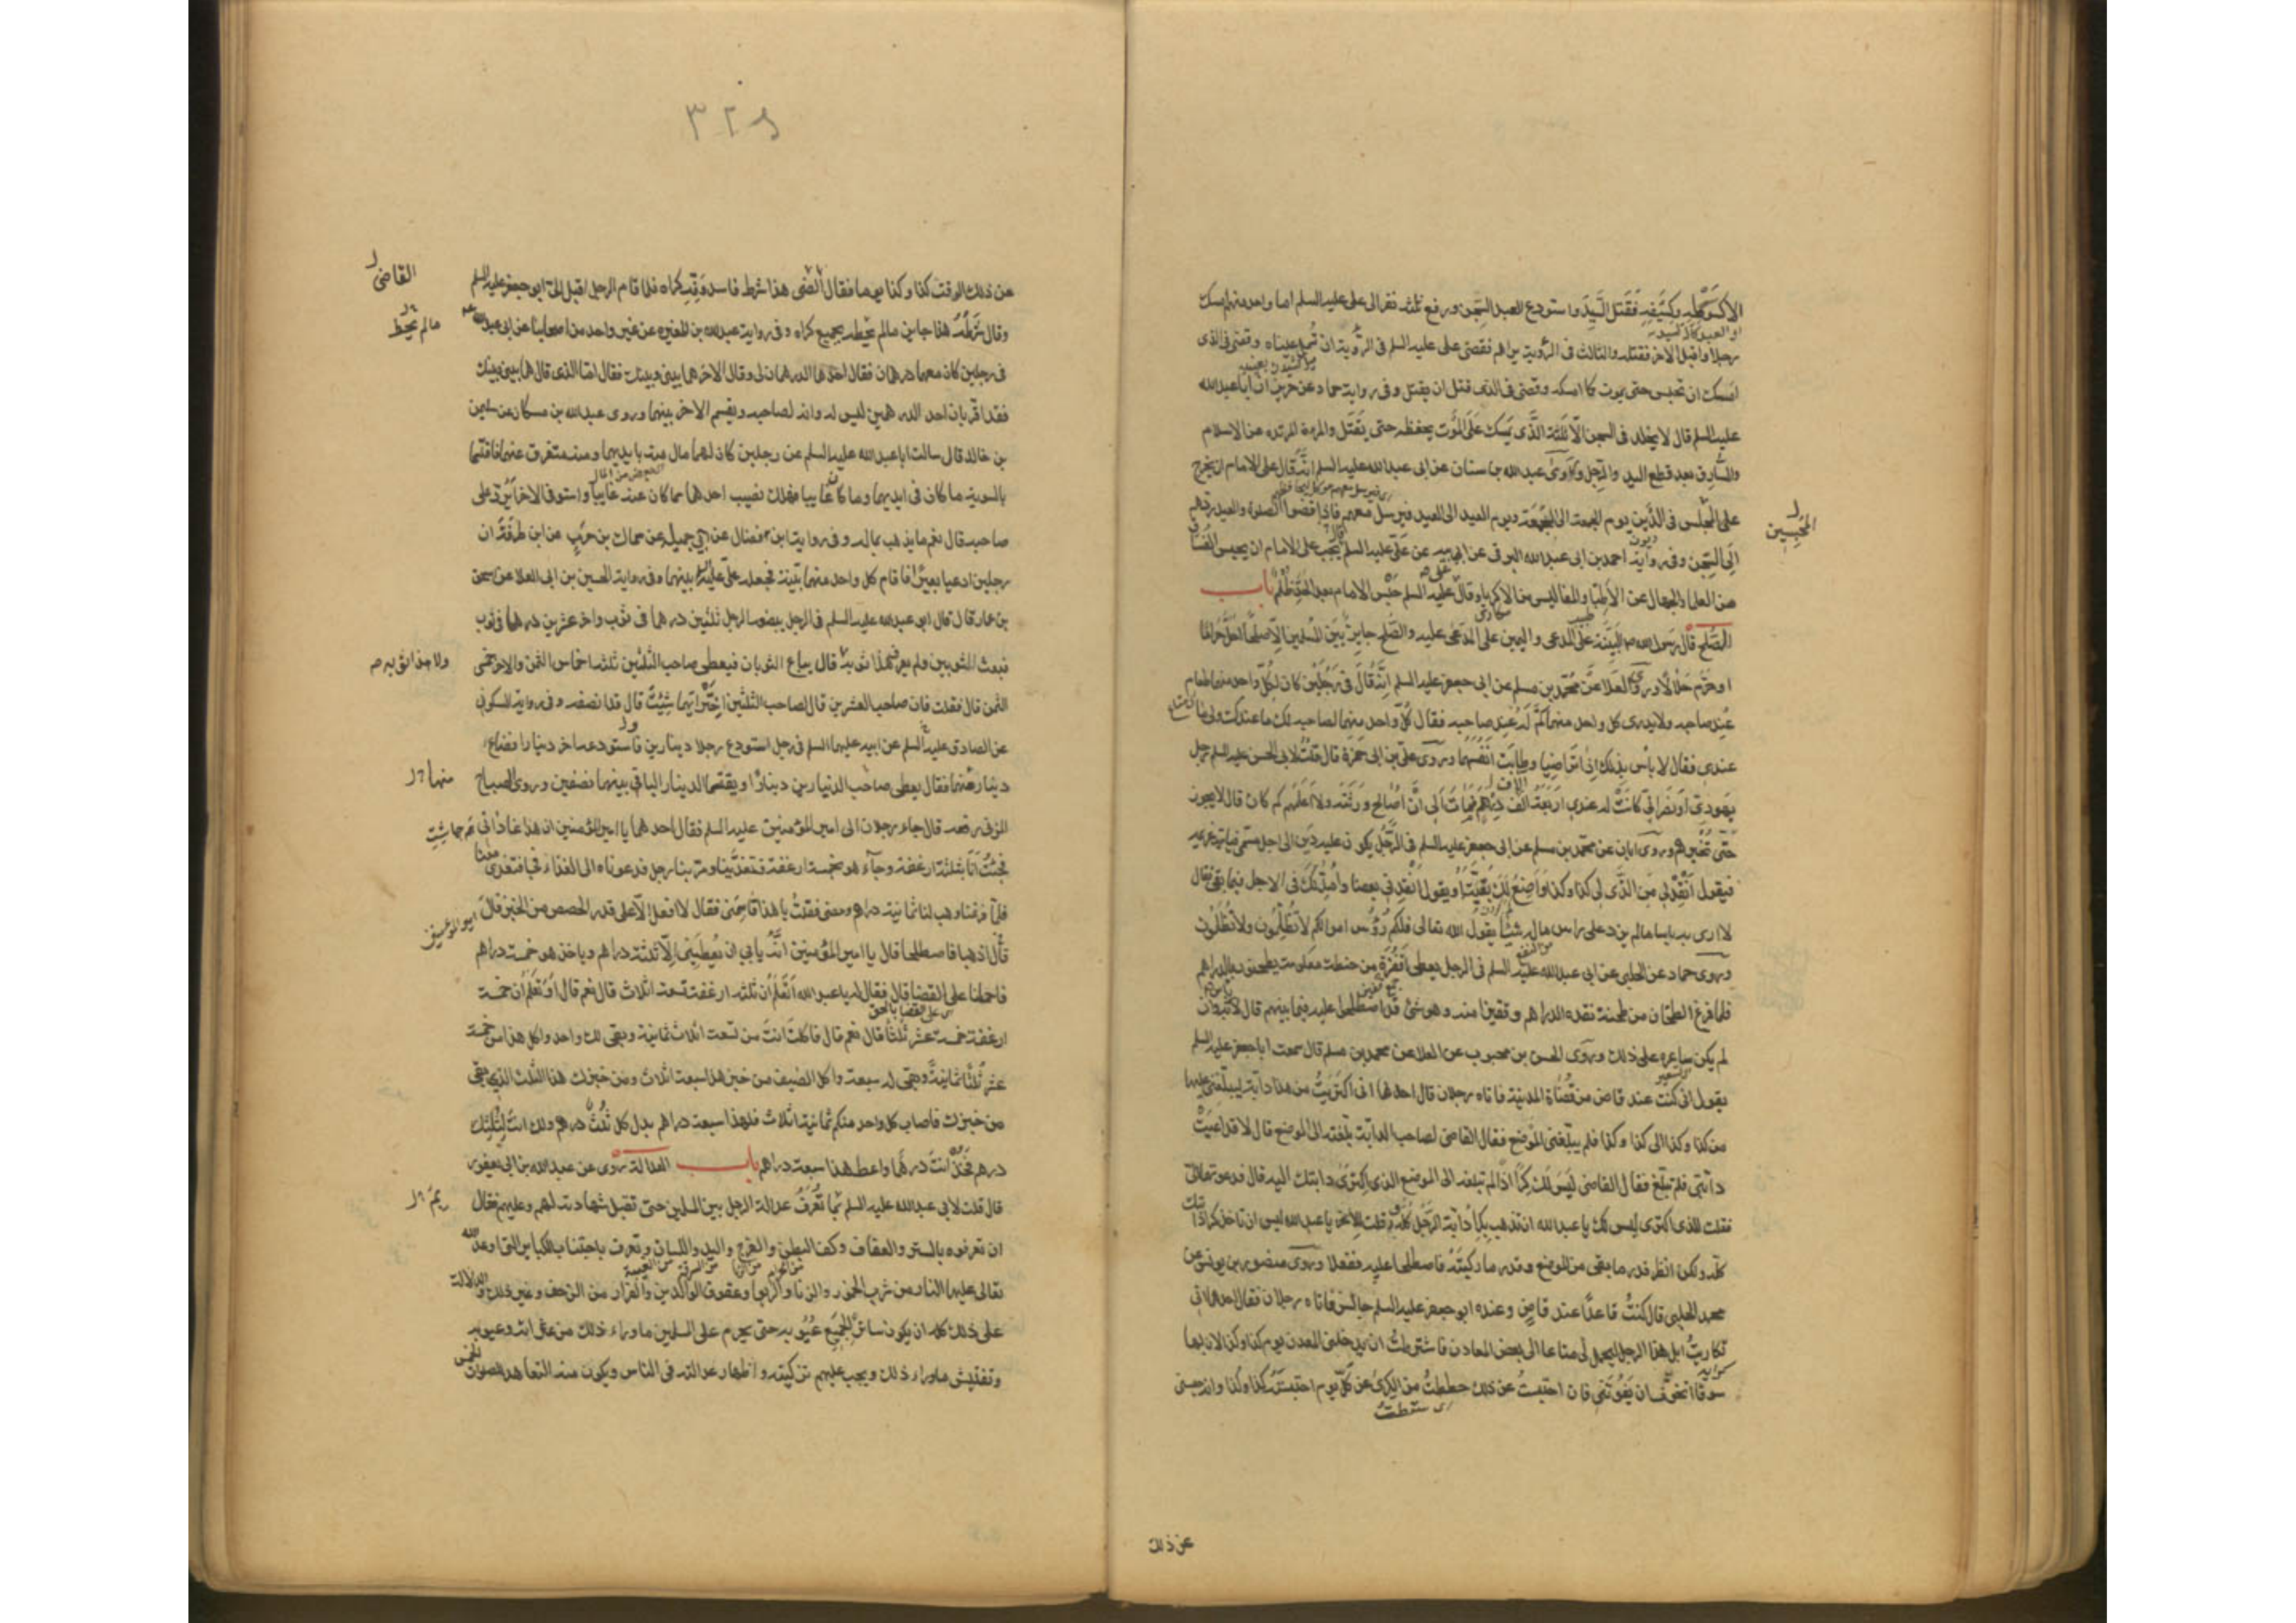 الا كسوطه وكسيفه فقتل السيد واستودع العبد السجن ورفع ثلثه نفر الى على عليه السلم اما واحد منهم امسك
رجلا واقبل الاخر فقتله والثالث فى الرؤية يراهم فقضى على عليه السلم فى الرؤية ان تسمل عيناه وقضى فى الذى
امسك ان يحبس حتى يموت كما امسكه وقضى فى الذى قتل ان يقتل وفى رواية حماد عن حريز ان ابا عبدالله
عليه السلم قال لا يخلد فى السجن الا ثلثة الذى يمسك على الموت يحفظه حتى يقتل والمرءة المرتده عن الاسلام
والسارق بعد قطع اليد والرجل وروى عبدالله بن سنان عن ابى عبدالله عليه السلم انه قال على الامام ان يخرج
المحبسين
على المحبس فى الدين يوم الجمعة الى الجمعة ويوم العيد الى العيد فيرسل معهم فاذا قضوا الصلوة والعيد ردهم
الى السجن وفى رواية احمد بن ابى عبدالله البرقى عن ابيه عن على عليه السلم قال يجب على الامام ان يحبس الفساق
من العلما والجهال من الاطبا والمفاليس من الاكريا وقال عليه السلم حبس الامام بعد الحد ظلم باب
الصلح قال رسول الله ص البينة على المدعى واليمين على المدعى عليه والصلح جايز بين المسلمين الا صلحا احل حراما
او حرم حلالا وروى العلا عن محمد بن مسلم عن ابى جعفر عليه السلم انه قال فى رجلين كان لكل واحد منهما طعام
عند صاحبه ولا يدرى كل واحد منهما كم له عند صاحبه فقال كل واحد منهما لصاحبه لك ما عندك ولى ما
عندى فقال لا باس بذلك اذا تراضيا وطابت انفسهما وروى على بن ابى حمزة قال قلت لابى الحسن عليه السلم رجل
يهودى او نصرانى كانت له عندى اربعة الف درهم فمات الى ان اصالح ورثته ولا اعلمهم كم كان قال لا يجوز
حتى تخبرهم وروى ابان عن محمد بن مسلم عن ابى جعفر عليه السلم فى الرجل يكون عليه دين الى اجل مسمى فياتيه غريمه
فيقول انقدنى من الذى لى كذا وكذا واضع لك بقيته او يقول انقدنى بعضا وامد لك فى الاجل فيما بقى فقال
لا ارى به باسا مالم يزد على راس ماله شيئا يقول الله تعالى فلكم رؤس اموالكم لا تظلمون ولا تظلمون
وروى حماد عن الحلبى عن ابى عبدالله عليه السلم فى الرجل يعطى اقفزة من حنطة معلومة يطحن بدراهم
فلما فرغ الطحان من طحنه نقده الدراهم وقفيزا منه وهو شئ قد اصطلحوا عليه فيما بينهم قال لا باس به وان
لم يكن ساعره على ذلك وروى الحسن بن محبوب عن العلا عن محمد بن مسلم قال سمعت ابا جعفر عليه السلم
يقول انى كنت عند قاض من قضاة المدينة فاتاه رجلان قال احدهما انى اكتريت من هذا دابة ليبلغنى عليها
من كذا وكذا الى كذا وكذا فلم يبلغنى الموضع فقال القاضى لصاحب الدابة بلغته الى الموضع قال لا قد اعيت
دابتى فلم تبلغ فقال القاضى ليس لك كرا اذ لم تبلغه الى الموضع الذى اكترى دابتك اليه قال فدعوتهما الى
فقلت للذى اكترى ليس لك يا عبدالله ان تذهب بكرا دابة الرجل كله وقلت للاخر يا عبدالله ليس ان تاخذ كرا
كله ولكن انظر قدر ما بقى من الموضع وقدر ما ركبته فاصطلحا عليه ففعلا وروى منصور بن يونس عن
محمد الحلبى قال كنت قاعدا عند قاض وعنده ابو جعفر عليه السلم جالس فاتاه رجلان فقال احدهما انى
تكاريت ابل هذا الرجل ليحمل لى متاعا الى بعض المعادن فاشترطت ان يدخلنى المعدن يوم كذا وكذا لان بها
سوقا اتخوف ان يفوتنى فان احتبست عن ذلك حططت من الكرى عن كل يوم احتبسته كذا وكذا وانه حبسنى
عن ذلك
٣٢٨
عن ذلك الوقت كذا وكذا يوما فقال القاضى هذا شرط فاسد وفه كراه فلما قام الرجل اقبل الى ابو جعفر عليه السلم
القاضى
وقال شرطه هذا جايز مالم يحط بجميع كراه وفى رواية عبدالله بن المغيره عن غير واحد من اصحابنا عن ابى عبدالله
مالم يحط
فى رجلين كان معهما درهمان فقال احدهما الدرهمان لى وقال الاخر هما بينى وبينك فقال اما الذى قال هما بينى وبينك
فقد اقر بان احد الدرهمين ليس له وانه لصاحبه ويقسم الاخر بينهما وروى عبدالله بن مسكان عن سليمن
بن خالد قال سالت ابا عبدالله عليه السلم عن رجلين كان لهما مال منه بايديهما ومنه متفرق عنهما فاقتسما
بالسوية ما كان فى ايديهما وما كان غايبا فهلك نصيب احدهما مما كان عنه غايبا واستوفى الاخر ايرد على
صاحبه قال نعم ما يذهب بماله وفى رواية ابن فضال عن ابى جميله عن سماك بن حرب عن ابن طرفة ان
رجلين ادعيا بعيرا فاقام كل واحد منهما بينة فجعله على عليه السلم بينهما وفى رواية الحسين بن ابى العلا عن اسحق
بن عمار قال قال ابو عبدالله عليه السلم فى الرجل يبضعه الرجل ثلثين درهما فى ثوب واخر عشرين درهما فى ثوب
فبعث الثوبين ولم يعرف هذا ثوبه قال يباع الثوبان فيعطى صاحب الثلثين ثلثه اخماس الثمن والاخر خمسى
ولا هذا ثوبه ص
الثمن قال فقلت فان صاحب العشرين قال لصاحب الثلثين اختر ايهما شئت قال قد انصفه وفى رواية السكونى
عن الصادق عليه السلم عن ابيه عليهما السلم فى رجل استودع رجلا دينارين فاستودعه اخر دينارا فضاع
دينار منهما فقال يعطى صاحب الدينارين دينارا ويقتسما الدينار الباقى بينهما نصفين وروى الصباح
منهما
المزنى رفعه قال جاء رجلان الى امير المؤمنين عليه السلم فقال احدهما يا امير المؤمنين ان هذا غادانى
فجئت انا بثلثة ارغفة وجاء هو بخمسة ارغفة فتغدينا ومر بنا رجل فدعوناه الى الغداء فجا فتغدى معنا
فلما فرغنا وهب لنا ثمانية دراهم ومضى فقلت يا هذا قاسمنى فقال لا افعل الا على قدر الحصص من الخبز قال
قال اذهبا فاصطلحا قال يا امير المؤمنين انه يابى ان يعطينى الا ثلثة دراهم وياخذ هو خمسة دراهم
فاحملنا على القضا قال فقال له يا عبدالله اتعلم ان ثلثه ارغفة تسعة اثلاث قال نعم قال او تعلم ان خمسة
ارغفة خمسة عشر ثلثا قال نعم قال فاكلت انت من تسعة اثلاث ثمانية وبقى لك واحد واكل هذا من خمسة
عشر ثلثا ثمانية وبقى له سبعة واكل الضيف من خبز هذا سبعة اثلاث ومن خبزك هذا الثلث الذى بقى
من خبزك فاصاب كل واحد منكم ثمانية اثلاث فلهذا سبعة دراهم بدل كل ثلث درهم ولك انت لثلثك
درهم فخذ انت درهما واعط هذا سبعة دراهم باب العدالة روى عن عبدالله بن ابى يعفور
قال قلت لابى عبدالله عليه السلم بما تعرف عدالة الرجل بين المسلمين حتى تقبل شهادته لهم وعليهم فقال
ان تعرفوه بالستر والعفاف وكف البطن والفرج واليد واللسان وتعرف باجتناب الكباير التى اوعد الله
تعالى عليها النار من شرب الخمور والزنا والربوا وعقوق الوالدين والفرار من الزحف وغير ذلك والدلالة
على ذلك كله ان يكون ساتر الجميع عيوبه حتى يحرم على المسلمين ما وراء ذلك من عثراته وعيوبه
وتفتيش ماوراء ذلك ويجب عليهم تزكيته واظهار عدالته فى الناس ويكون منه التعاهد للصلوات الخمس